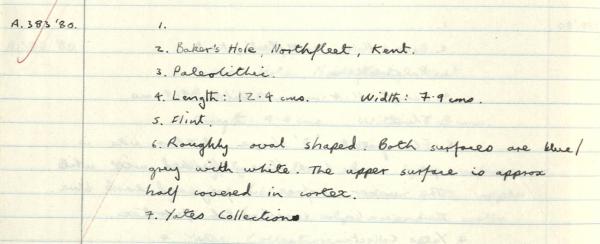 A.383'80. 1.
2. Baker's Hole, Northfleet, Kent.
3. Paleolithic.
4. Length: 12.4 cms. Width: 7.9 cms.
5. Flint.
6. Roughly oval shaped. Both surfaces are blue/
grey with white. The upper surface is approx
half covered in cortex.
7. Yates Collection